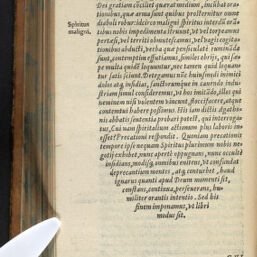 Dei gratiam elicilet quærat medium, incubat ora-
tionibus, quæ arma sunt quibus profternitur omne
diaboli robur: idcirco maligni spiritus intensius oran-
Spiritus
maligni.
tibus nobis impedimenta struunt, ut vel torpamus
pertæsi, vel territi obmutescamus, vel vagis cogita-
tionibus abducti, verba quæ
sunt, contemptim effutiamus, similes ebriis, qui sæ-
pe multa quidē loquuntur, nec tamen quid loquan-
tur satis sciunt. Detegamus nos huiusmodi inimici
dolos atq. insidias,
striam simul consideremus, ut hos inimicos, illes qui
neminem nisi volentem vincunt, floccifacere, atque
contentui habere possimus. His iam dictis Apatho-
nis abbatis sententia probari potest, qui interroga-
tus, Cui nam spiritalium actionum plus laboris in-
esset? Precationi respondit. Quoniam precationis
tempore ipse nequam Spiritus plurimum nobis ne-
gotij exhibet, nunc apertè oppugnans, nunc occultè
insidians, modisq́; omnibus enitens, ut confundat
deprecantium mentes, atq́; conturbet, haud
ignarus quanti apud Deum momenti sit,
constans, continua, perseverans, hu-
militer orantis intentio. Sed his
finem imponamus, ut libri
modus sit.